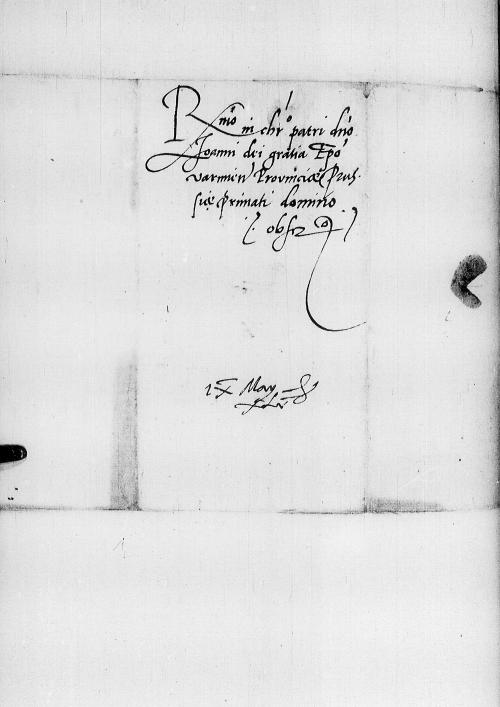 Rmo in chro patri dno
Joanni dei gratia Epo
varmien Provinciæ Prus
siæ Primati domino
obser
May